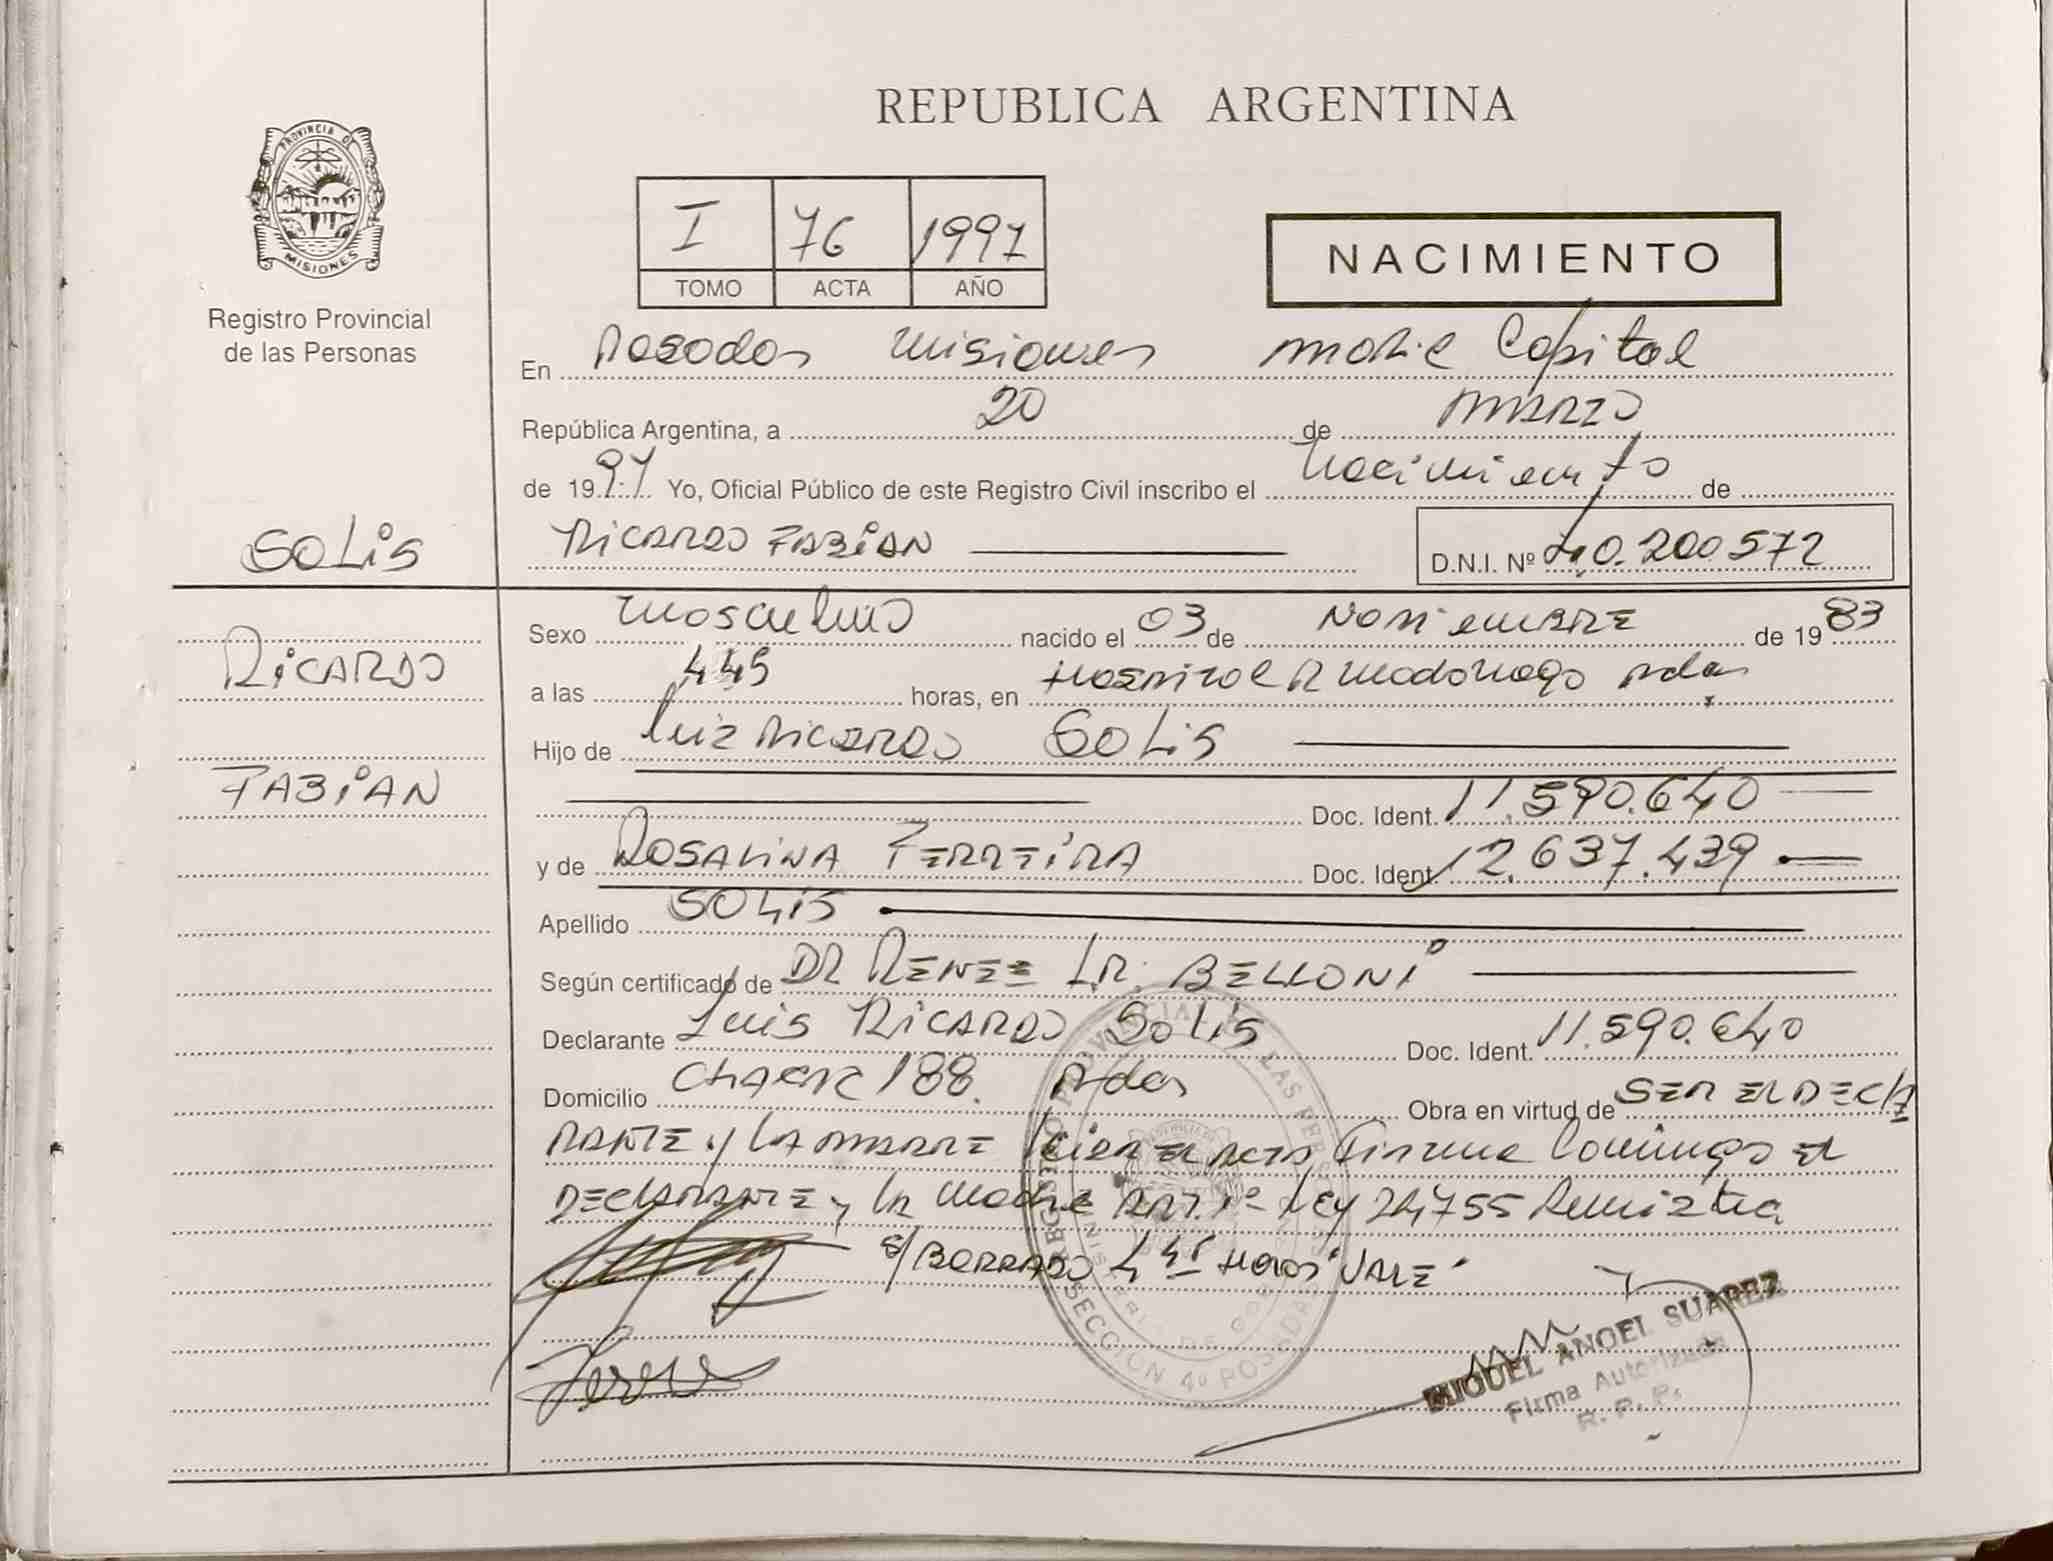 REPUBLICA ARGENTINA
PROVINCIA DE
MISIONES
Registro Provincial
de las Personas
I 76 1997
TOMO ACTA AÑO
NACIMIENTO
En Posadas Misiones Capital
República Argentina, a 20 de MARZO
de 1997 Yo, Oficial Público de este Registro Civil inscribo el Nacimiento de
SOLIS
RICARDO FABIAN D.N.I. Nº 40.200.572
Sexo Masculino nacido el 03 de Noviembre de 1983
RICARDO
a las 445 horas, en Hospital R Madariaga Pdas
Hijo de Luiz Ricardo SOLIS
FABIAN
Doc. Ident. 11.590.640
y de ROSALINA FERREIRA Doc. Ident. 12.637.439
Apellido SOLIS
Según certificado de DR RENEE L.R. BELLONI
Declarante Luis RICARDO SOLIS Doc. Ident. 11.590.640
Domicilio CHACRA 188. Pdas Obra en virtud de SER EL DECLA
RANTE y LA MADRE Leida EL ACTA, Firma Conmigo EL
DECLARANTE y la Madre ART. 1º Ley 24755
s/ BORRADO 4 45 Horas "VALE"
REGISTRO PROVINCIAL DE LAS PERSONAS
SECCION 4º POSADAS
MIGUEL ANGEL SUAREZ
Firma Autorizada
R. P. P.